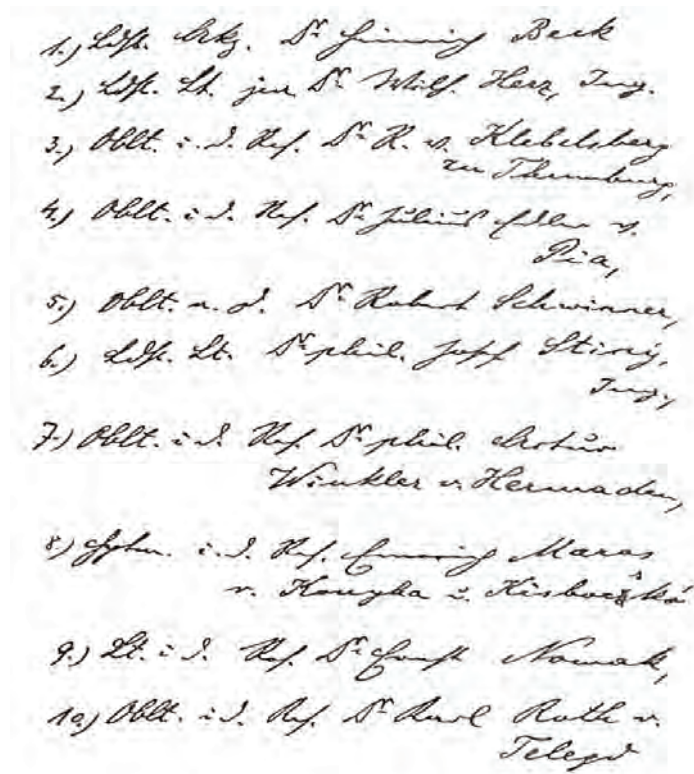 1.) Ldst. Arzt. Dr Heinrich Beck
2.) Ldst. Lt. jur. Dr Wilf. Herz, Ing.
3.) Oblt. i. d. Res. Dr R. v. Klebelsberg
zu Thumburg,
4.) Oblt. i. d. Res. Dr Julius Edler v.
Pia,
5.) Oblt. a. D. Dr Robert Schwinner,
6.) Ldst. Lt. Dr phil. Josef Stiny,
Ing.,
7.) Oblt. i. d. Res. Dr phil. Artur
Winkler v. Hermaden,
8.) i. d. Res. Emmerich Maros
v. Konyha u.
9.) Lt. i. d. Res. Dr Ernst Nowak,
10.) Oblt. i. d. Res. Dr Karl Roth v.
Telegd